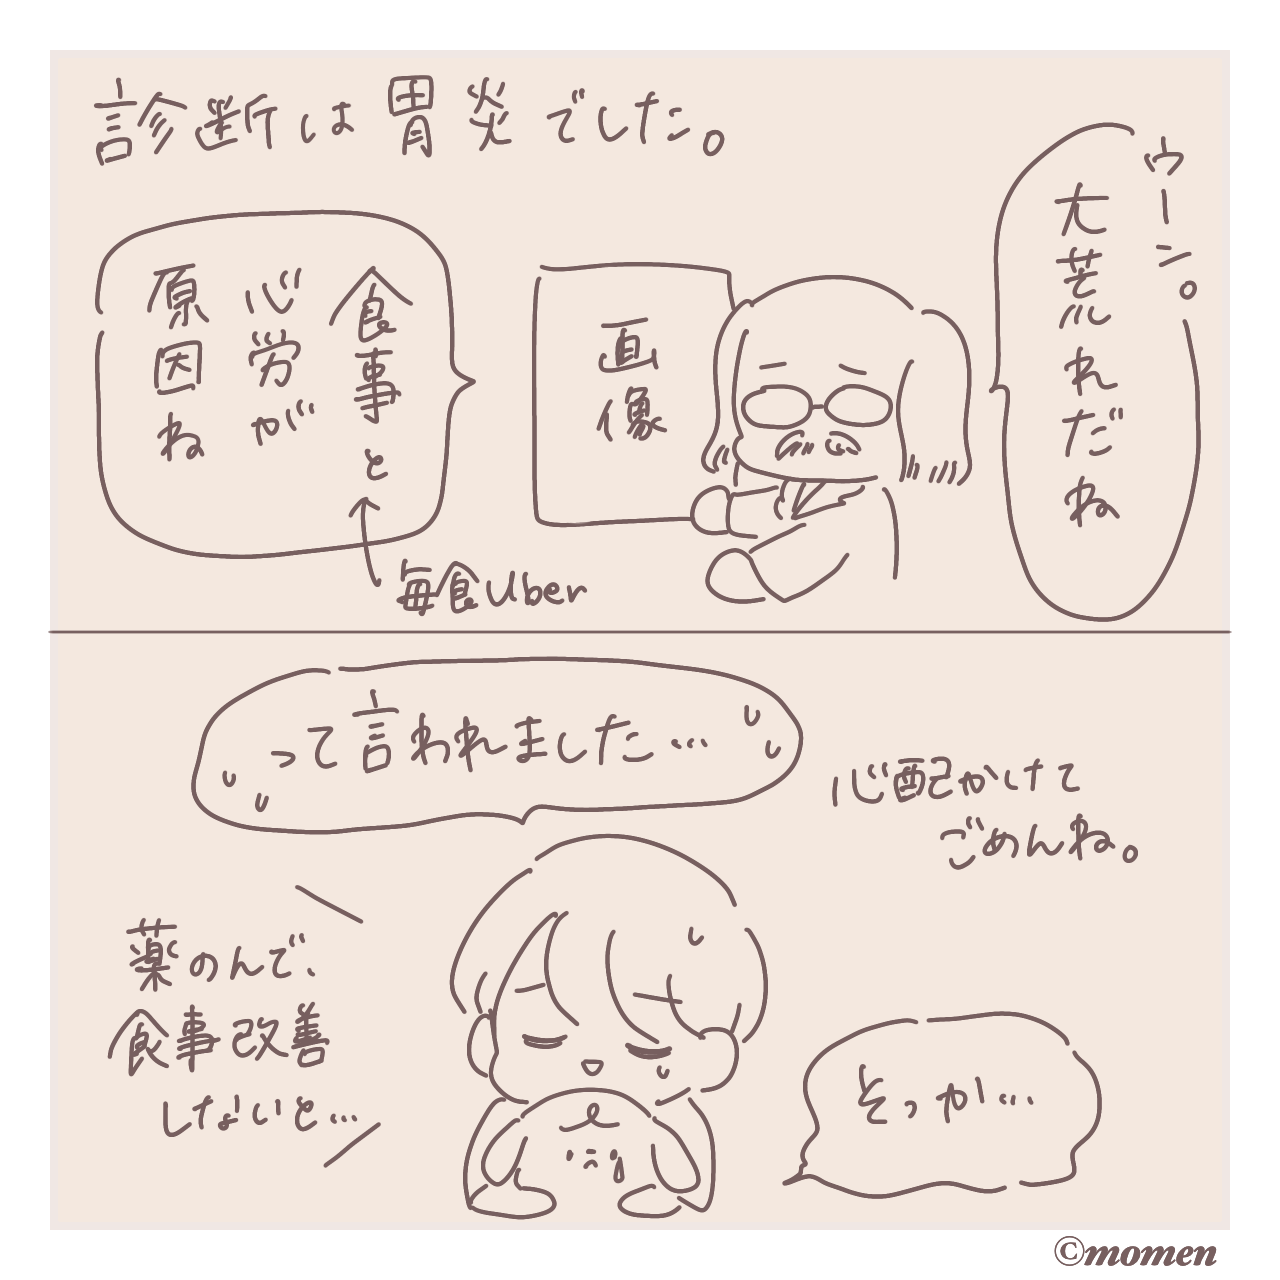 診断は胃炎でした。
ウーン。
大荒れだね
画像
食事と
心労が
原因ね
毎食Uber
って言われました…
心配かけて
ごめんね。
薬のんで、
食事改善
しないと…
そっか…
©momen